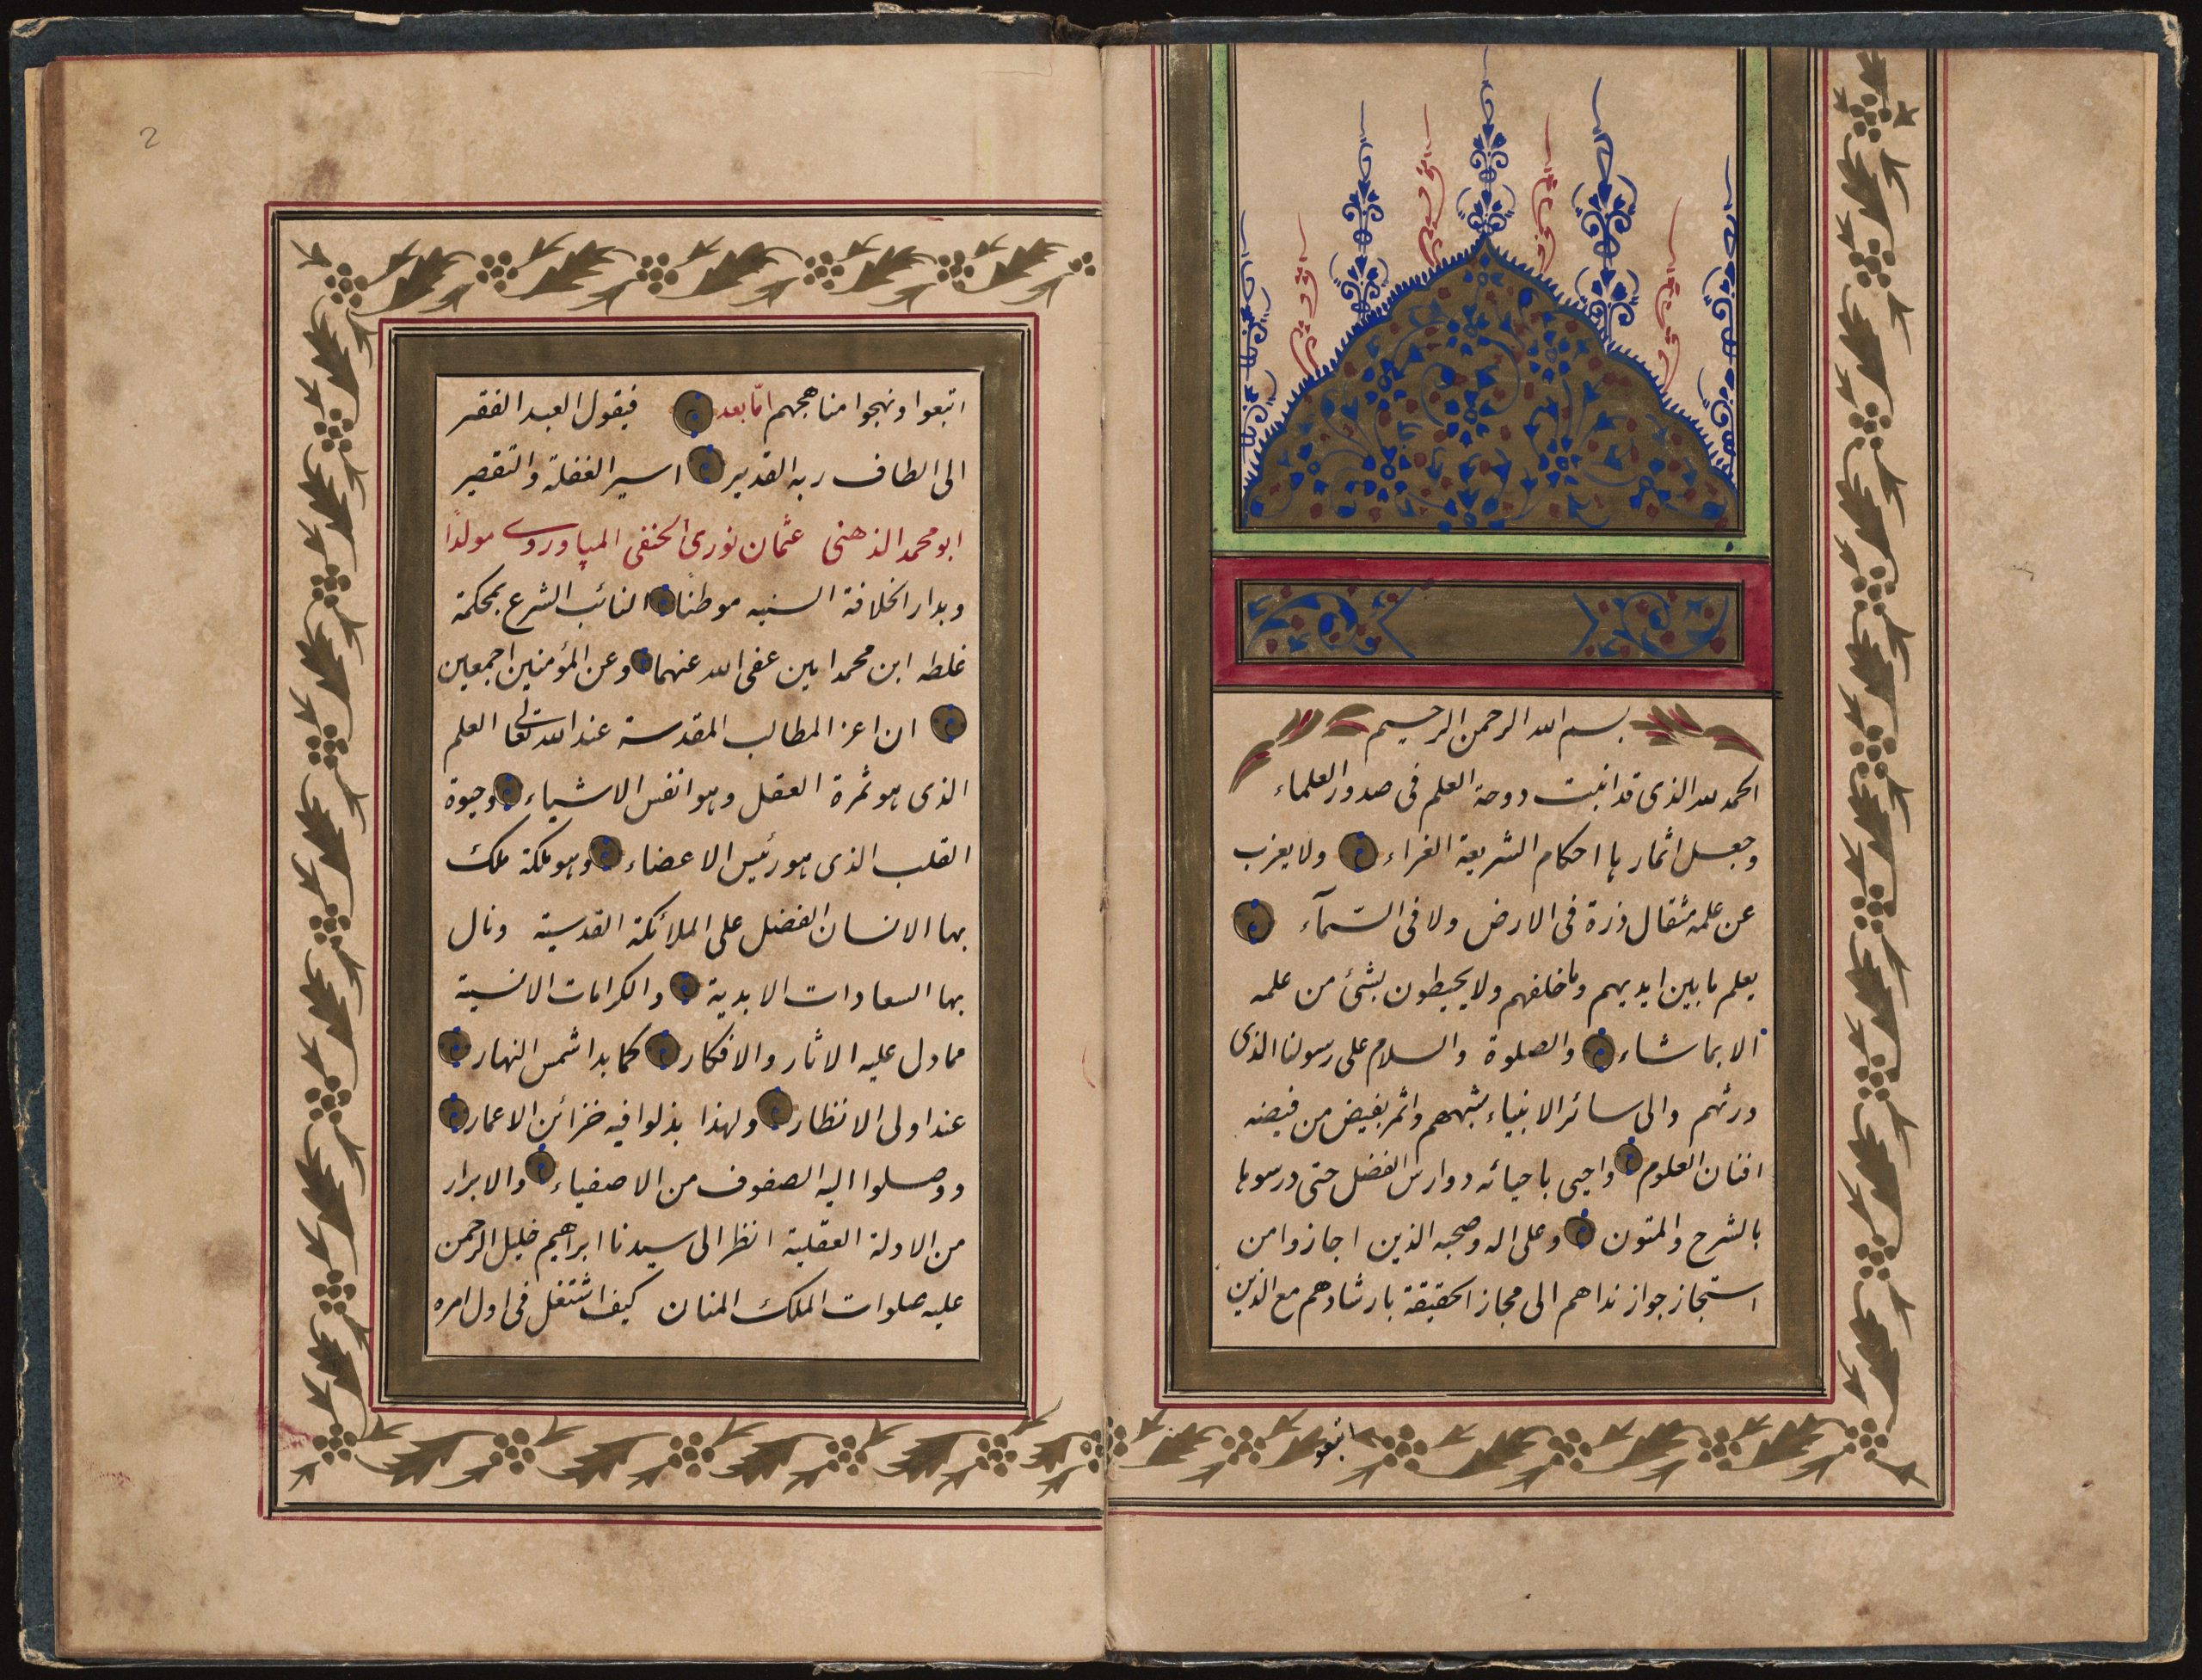 بسم الله الرحمن الرحيم
الحمد لله الذى قد انبت دوحة العلم فى صدور العلماء
وجعل اثمارها احكام الشريعة الغراء ولا يعزب
عن علمه مثقال ذرة فى الارض ولا فى السّمآء
يعلم ما بين ايديهم وما خلفهم ولا يحيطون بشئ من علمه
الا بما شاء والصلوة والسلام على رسولنا الذى
ورثهم والى سائر الانبياء شبههم واثمر بفيض من فيضه
افنان العلوم واحيى باحيائه دوارس الفضل حتى درسوها
بالشرح والمتون وعلى اله وصحبه الذين اجازوا من
استجاز جواز نداهم الى مجاز الحقيقة بارشادهم مع الذين
اتبعوا
2
اتبعوا ونهجوا مناهجهم امّا بعد فيقول العبد الفقر
الى الطاف ربه القدير اسير الغفلة والتقصير
ابو محمد الذهنى عثمان نورى الحنفى المپاوروى مولدًا
وبدار الخلافة السنيه موطنًا النائب الشرع بمحكمة
غلطه ابن محمد امين عفى الله عنهما وعن المؤمنين اجمعين
ان اعز المطالب المقدسة عند الله تعالى العلم
الذى هو ثمرة العقل وهو انفس الاشياء وحيوة
القلب الذى هو رئيس الاعضاء وهو ملكة ملك
بها الانسان الفضل على الملائكة القدسية ونال
بها السعادات الابدية والكرامات الانسية
مما دل عليه الاثار والافكار كما بدا شمس النهار
عند اولى الانظار ولهذا بذلوا فيه خزائن الاعمار
ووصلوا اليه الصفوف من الاصفياء والابرار
من الادلة العقلية انظر الى سيدنا ابراهيم خليل الرحمن
عليه صلوات الملك المنان كيف اشتغل فى اول امره